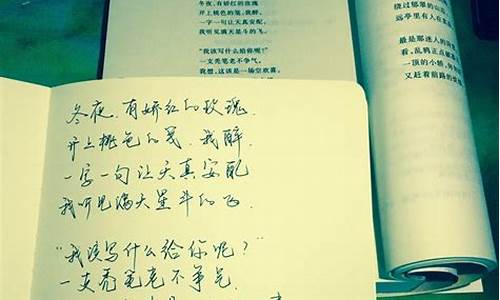 冬夜，有娇红的玫瑰
开上桃色的笺，我醉，
一字一句让天真安配，
我听见满天星斗的飞。
“我该写什么给你呢？”
一支秃笔老不争气。
我想，这该是一场空欢喜，
绕过郁翠的山
远亭里有人在
最是那迷人的
看，乱鸦正点破
一顶的小轿，
又赶着前路的
冬夜，有娇红的玫瑰.
开上桃色的笺，我醉.
一字一句让天真安配
我听见满天星斗的飞.
“我该写什么给你呢？”
一支秃笔老不争气.